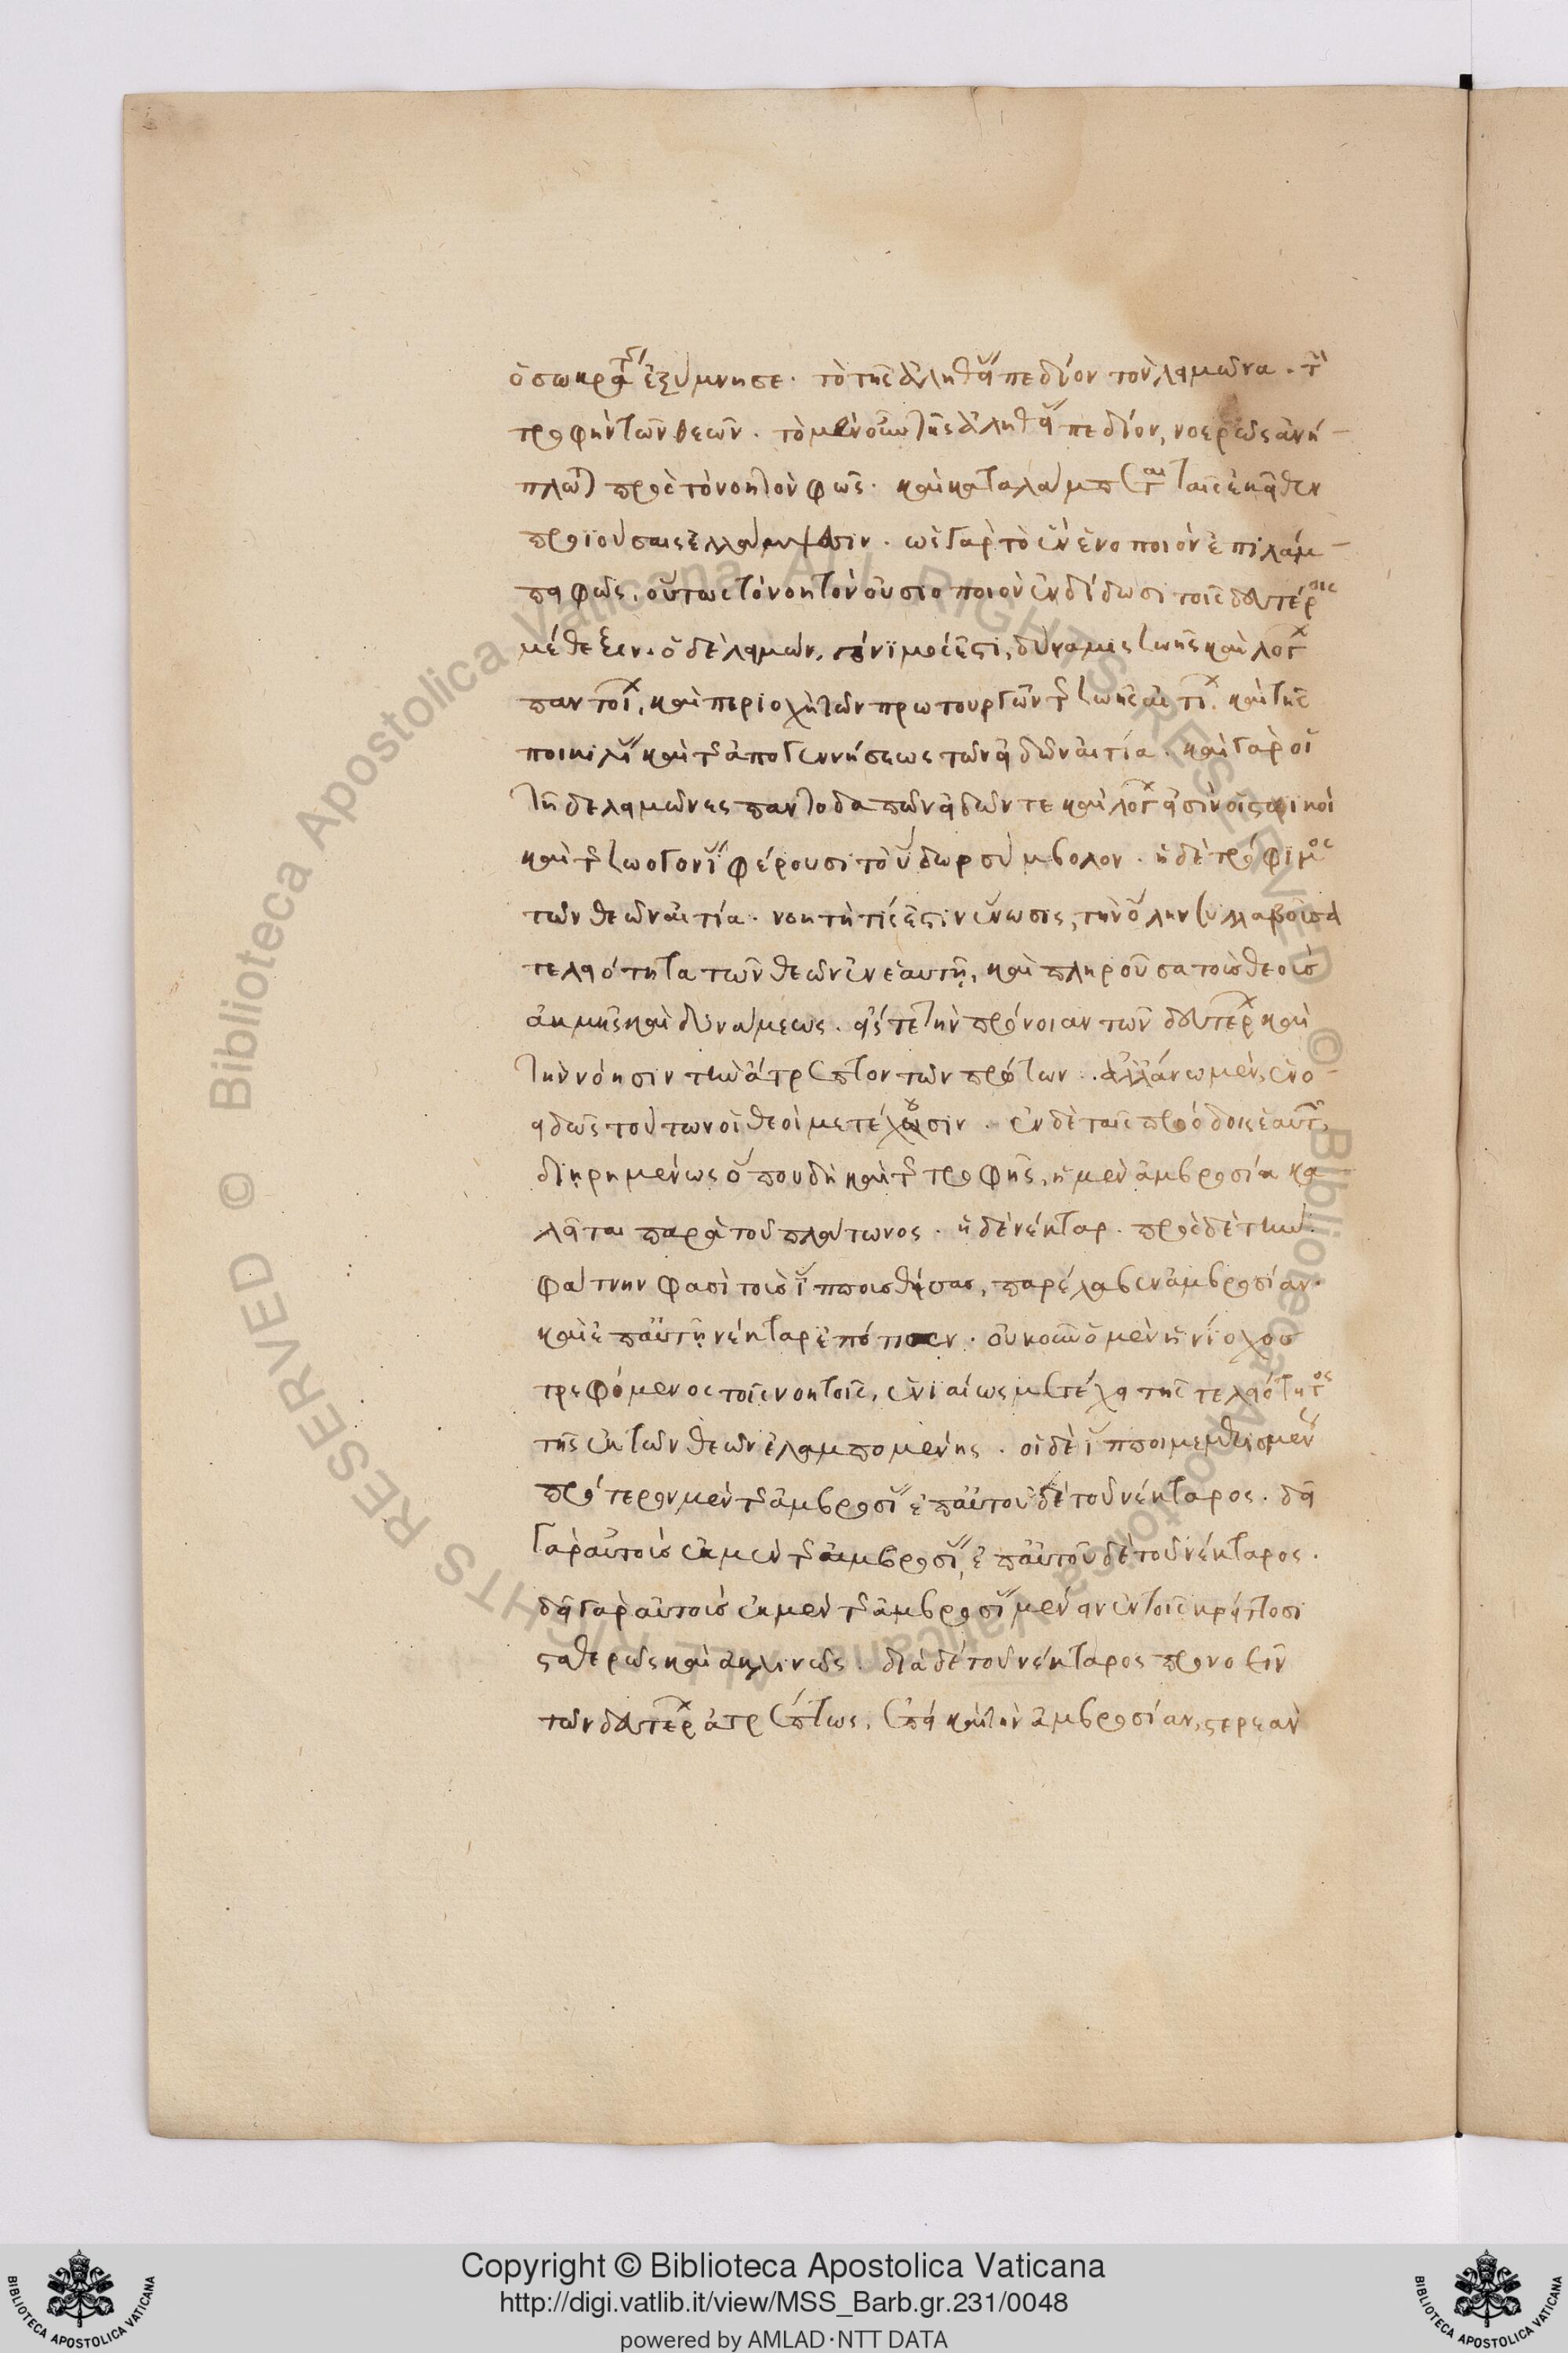 ὁ σωκράτης ἐξύμνησε. τὸ τῆς ἀληθείας πεδίον τὸν λειμῶνα. τὴν
τροφὴν τῶν θεῶν. τὸ μὲν οὖν τῆς ἀληθείας πεδίον, νοερῶς ἀνή-
πλωται πρὸς τὸ νοητὸν φῶς. καὶ καταλάμπεται ταῖς ἐκεῖθεν
προϊούσαις ἐλλάμψεσιν. ὡς γὰρ τὸ ἓν ἑνοποιὸν ἐπιλάμ-
πει φῶς, οὕτως τὸ νοητὸν οὐσιοποιὸν ἐνδίδωσι τοῖς δευτέροις
μέθεξιν. ὁ δὲ λειμών, γόνιμος ἐστι, δύναμις ζωῆς καὶ λόγων
παντοίων, καὶ περιοχὴ τῶν πρωτουργῶν τῆς ζωῆς αἰτίων. καὶ τῆς
ποικιλίας καὶ τῆς ἀπογεννήσεως τῶν εἰδῶν αἰτία. καὶ γὰρ οἱ
τῇδε λειμῶνες παντοδαπῶν εἰδῶν τε καὶ λόγων εἰσὶν οἰστικοὶ
καὶ τῆς ζωογονίας φέρουσι τὸ ὕδωρ σύμβολον. ἡ δὲ τρόφιμος
τῶν θεῶν αἰτία. νοητή τίς ἐστιν ἕνωσις, τὴν ὅλην συλλαβοῦσα
τελειότητα τῶν θεῶν ἐν ἑαυτῇ, καὶ πληροῦσα τοὺς θεοὺς
ἀκμῆς καὶ δυνάμεως. εἴς τε τὴν πρόνοιαν τῶν δευτέρων καὶ
τὴν νόησιν τὴν ἄτρεπτον τῶν πρώτων. ἀλλ' ἄνω μὲν, ἑνο-
ειδῶς τούτων οἱ θεοὶ μετέχουσιν. ἐν δὲ ταῖς προόδοις ἑαυτῶν
διῃρημένως ὅπου δὴ καὶ τῆς τροφῆς, ἡ μὲν ἀμβροσία κα
λεῖται παρὰ τοῦ πλάτωνος. ἡ δὲ νέκταρ. πρὸς δὲ τὴν
φάτνην φασὶ τοὺς ἵππους θήσας, παρέλαβεν ἀμβροσίαν.
καὶ ἐπ αὐτῇ νέκταρ ἐπότισεν. οὐκοῦν ὁ μὲν ἡνίοχος
τρεφόμενος τοῖς νοητοῖς, ἑνιαίως μετέχει τῆς τελειότητος
τῆς ἐκ τῶν θεῶν ἐλαμπομένης. οἱ δὲ ἵπποι μεμερισμένως
πρότερον μὲν τῆς ἀμβροσίας ἐπ αὐτοῦ δὲ τοῦ νέκταρος. δεῖ
γὰρ αὐτοὺς ἐκ μὲν τῆς ἀμβροσίας, ἐπ αὐτοῦ δὲ τοῦ νέκταρος.
δεῖ γὰρ αὐτοὺς ἐκ μὲν τῆς ἀμβροσίας μένειν ἐν τοῖς κρείττοσι
σταθερῶς καὶ ἀκλινῶς. διὰ δὲ τοῦ νέκταρος προνοεῖν
τῶν δευτέρων ἀτρέπτως, ἐπεὶ καὶ τὴν ἀμβροσίαν, στερεὰν
Copyright © Biblioteca Apostolica Vaticana
http://digi.vatlib.it/view/MSS_Barb.gr.231/0048
powered by AMLAD·NTT DATA